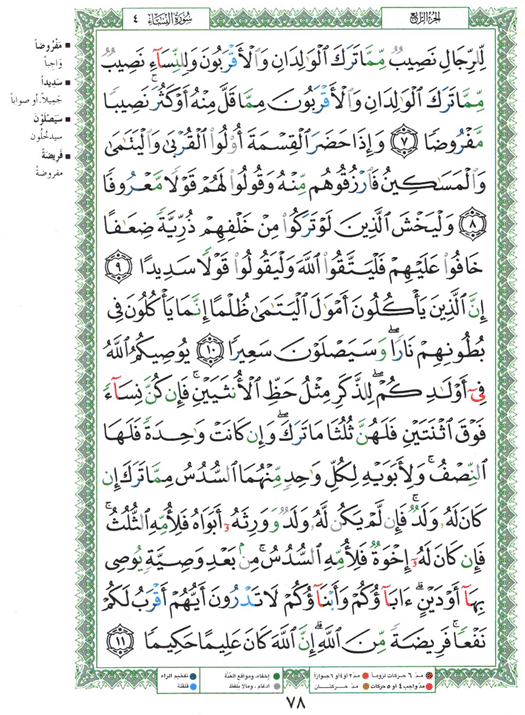 الجزء الرابع
سورة النساء ٤
لِّلرِّجَالِ نَصِيبٌ مِّمَّا تَرَكَ الْوَالِدَانِ وَالْأَقْرَبُونَ وَلِلنِّسَاءِ نَصِيبٌ
مِّمَّا تَرَكَ الْوَالِدَانِ وَالْأَقْرَبُونَ مِمَّا قَلَّ مِنْهُ أَوْ كَثُرَ ۚ نَصِيبًا
مَّفْرُوضًا ٧ وَإِذَا حَضَرَ الْقِسْمَةَ أُولُوا الْقُرْبَىٰ وَالْيَتَامَىٰ
وَالْمَسَاكِينُ فَارْزُقُوهُم مِّنْهُ وَقُولُوا لَهُمْ قَوْلًا مَّعْرُوفًا
٨ وَلْيَخْشَ الَّذِينَ لَوْ تَرَكُوا مِنْ خَلْفِهِمْ ذُرِّيَّةً ضِعَافًا
خَافُوا عَلَيْهِمْ فَلْيَتَّقُوا اللَّهَ وَلْيَقُولُوا قَوْلًا سَدِيدًا ٩
إِنَّ الَّذِينَ يَأْكُلُونَ أَمْوَالَ الْيَتَامَىٰ ظُلْمًا إِنَّمَا يَأْكُلُونَ فِي
بُطُونِهِمْ نَارًا ۖ وَسَيَصْلَوْنَ سَعِيرًا ١٠ يُوصِيكُمُ اللَّهُ
فِي أَوْلَادِكُمْ ۖ لِلذَّكَرِ مِثْلُ حَظِّ الْأُنثَيَيْنِ ۚ فَإِن كُنَّ نِسَاءً
فَوْقَ اثْنَتَيْنِ فَلَهُنَّ ثُلُثَا مَا تَرَكَ ۖ وَإِن كَانَتْ وَاحِدَةً فَلَهَا
النِّصْفُ ۚ وَلِأَبَوَيْهِ لِكُلِّ وَاحِدٍ مِّنْهُمَا السُّدُسُ مِمَّا تَرَكَ إِن
كَانَ لَهُ وَلَدٌ ۚ فَإِن لَّمْ يَكُن لَّهُ وَلَدٌ وَوَرِثَهُ أَبَوَاهُ فَلِأُمِّهِ الثُّلُثُ ۚ
فَإِن كَانَ لَهُ إِخْوَةٌ فَلِأُمِّهِ السُّدُسُ ۚ مِن بَعْدِ وَصِيَّةٍ يُوصِي
بِهَا أَوْ دَيْنٍ ۗ آبَاؤُكُمْ وَأَبْنَاؤُكُمْ لَا تَدْرُونَ أَيُّهُمْ أَقْرَبُ لَكُمْ
نَفْعًا ۚ فَرِيضَةً مِّنَ اللَّهِ ۗ إِنَّ اللَّهَ كَانَ عَلِيمًا حَكِيمًا ١١
▪ مَفْرُوضاً
وَاجباً
▪ سَدِيداً
جَمِيلاً، أو صواباً
▪ سَيَصْلَوْن
سيدخُلُون
▪ فَرِيضَةً
مفروضةً
مدّ ٦ حركات لزوماً
مدّ ٢ أو ٤ أو ٦ جوازاً
مدّ واجب ٤ أو ٥ حركات
مدّ حركتان
إخفاء، ومواقع الغُنَّة
ادغام، ومالا يُلفظ
تفخيم الراء
قلقلة
٧٨